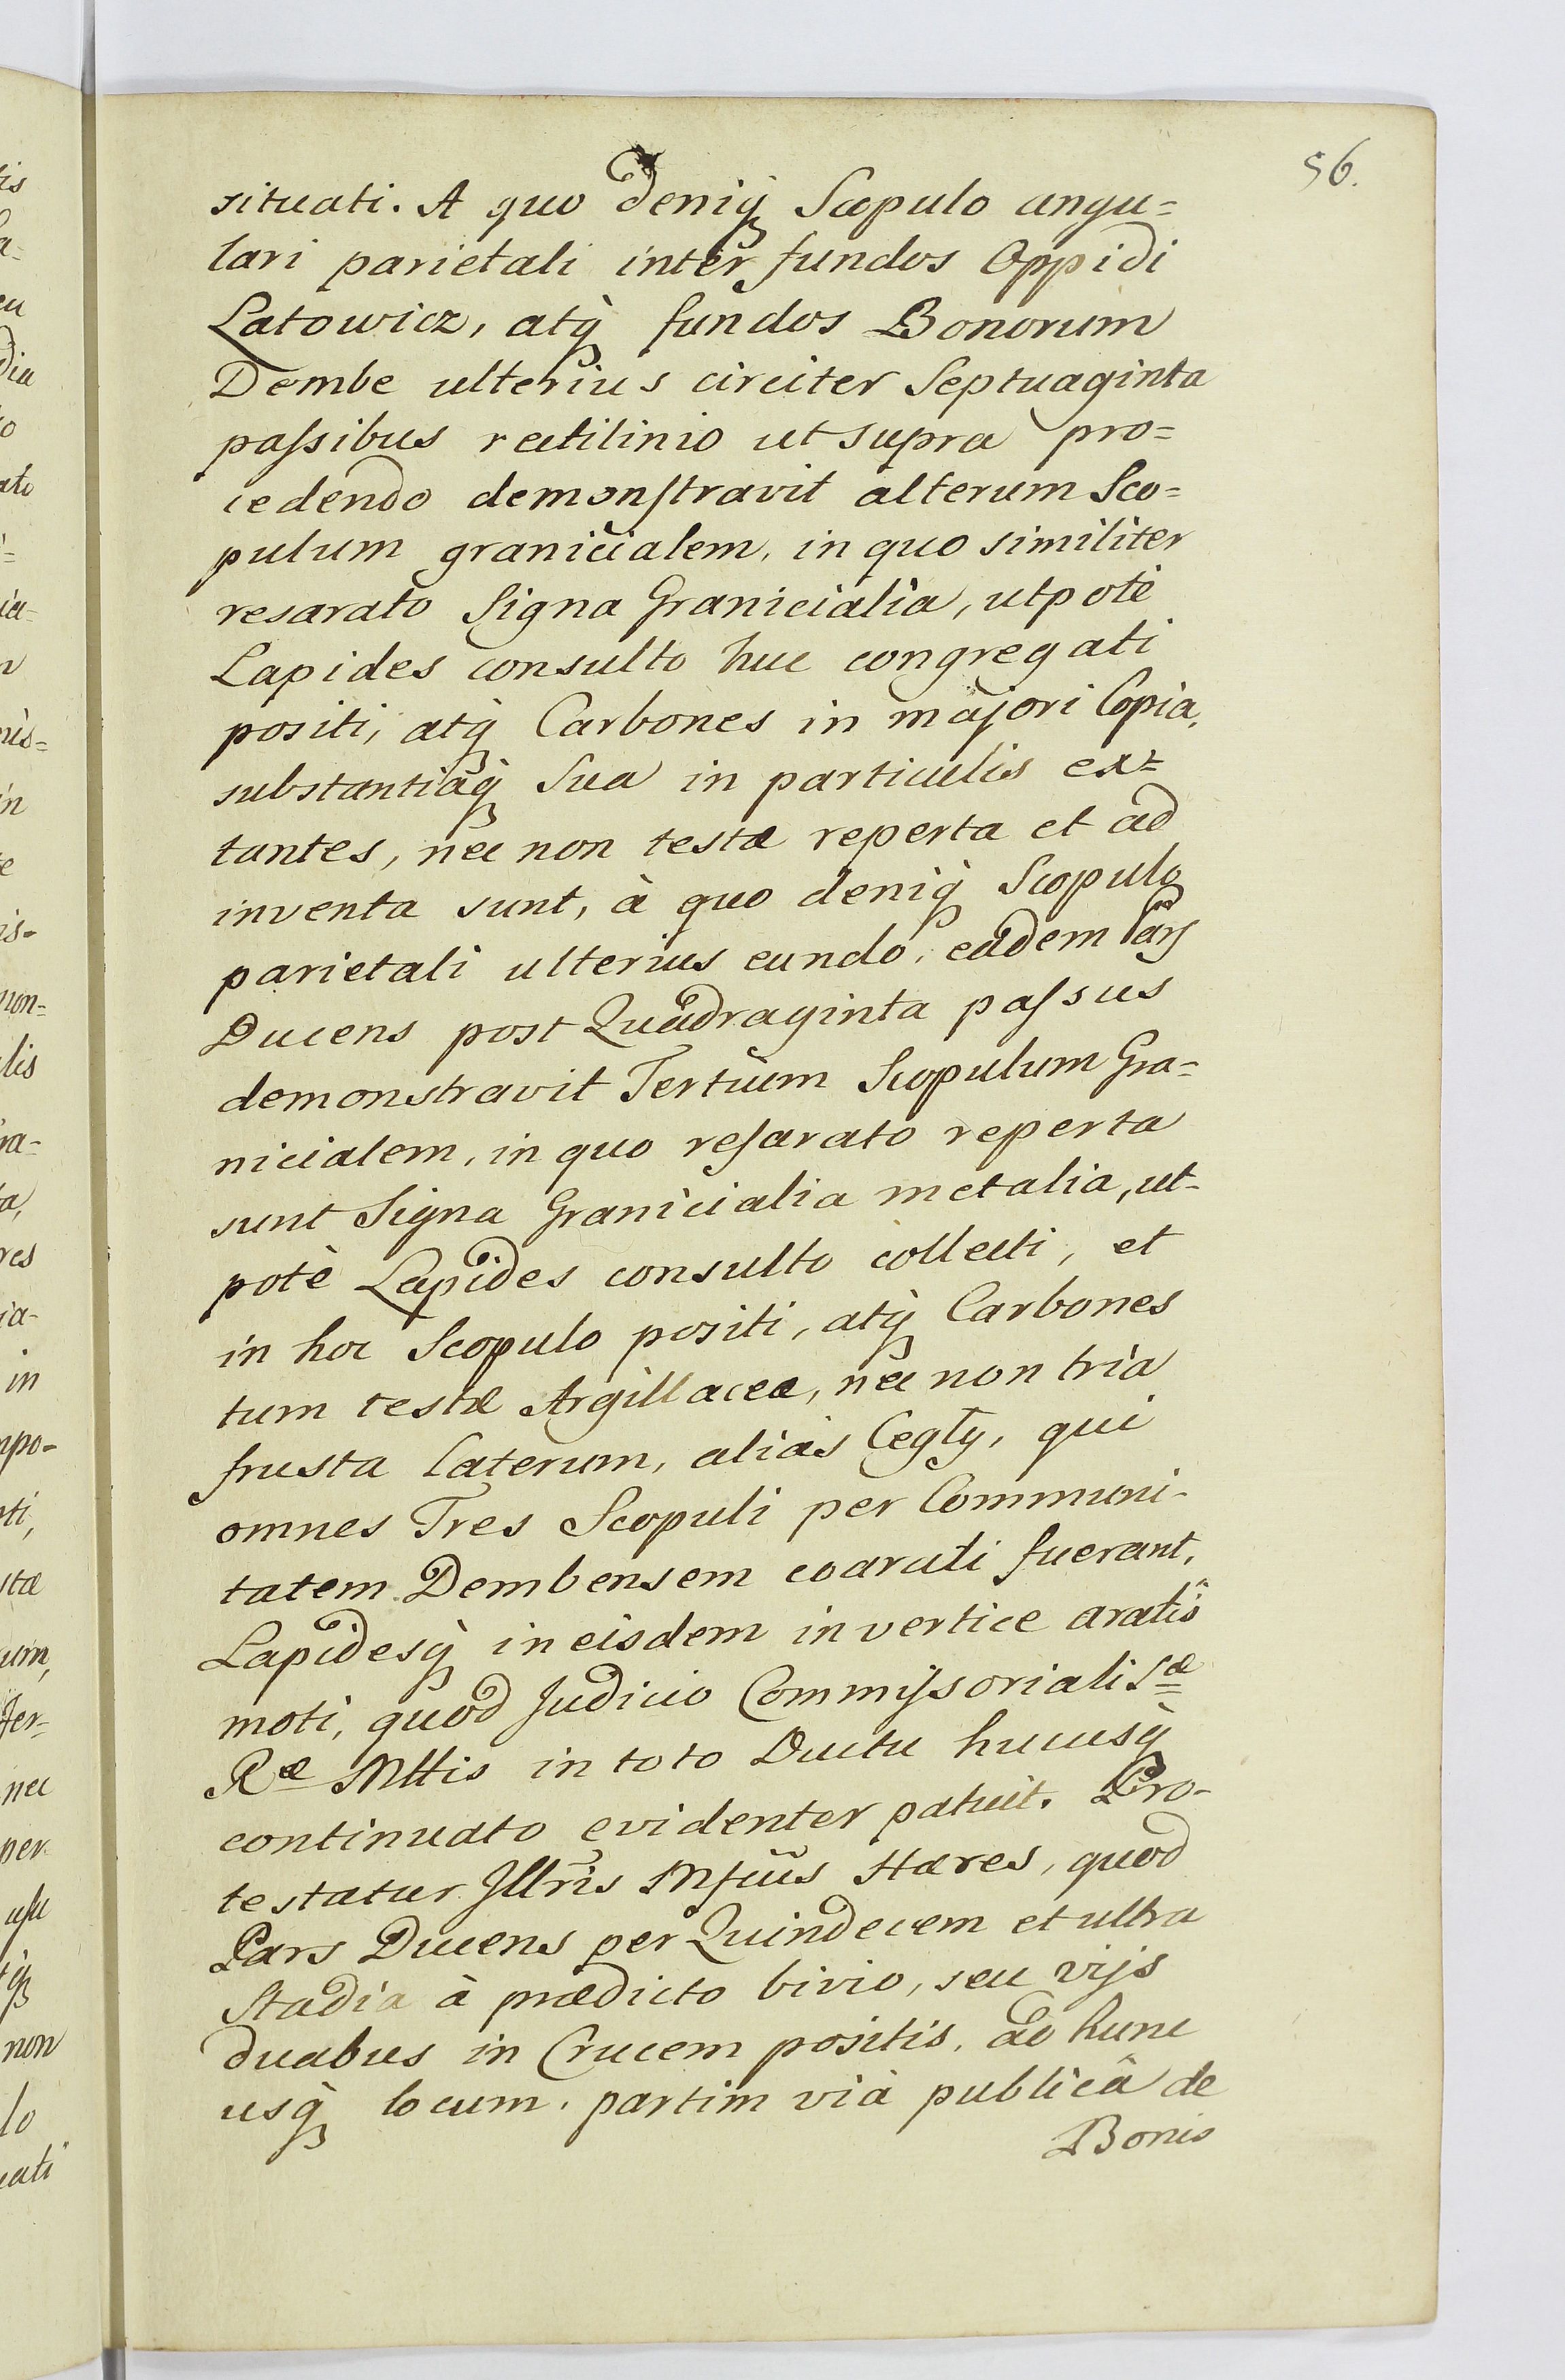 56.
situati. A quo deniq̀ Scopulo angu=
lari parietali inter fundos Oppidi
Latowicz, atq̀ fundos Bonorum
Dembe ulterius circiter Septuaginta
paſsibus rectilinio ut supra pro=
cedendo demonſtravit alterum Sco=
pulum granicialem, in quo similiter
resarato Signa Granicialia, utpotè
Lapides consulto huc congregati
positi, atq̀ Carbones in majori Copia,
substantiaq̀ Sua in particulis ex=
tantes, nec non testæ reperta et ad
inventa sunt, à quo deniq̀ Scopulo
parietali ulterius eundo, eadem Pars
Ducens post Quadraginta paſsus
demonstravit Tertium Scopulum Gra=
nicialem, in quo reſarato reperta
sunt Signa Granicialia metalia, ut-
potè Lapides consulto collecti, et
in hoc Scopulo positi, atq̀ Carbones
tum testæ Argillaceæ, nec non tria
frusta laterum, alias Cegły, qui
omnes Tres Scopuli per Communi-
tatem Dembensem coarati fuerant,
Lapidesq̀ in eisdem in vertice aratis
moti, quod Judicio Commiſsoriali Sæ
Ræ Mttis in toto Ductu hucusq̀
continuato evidenter patuit. Pro-
testatur Jllris Mfcus Hæres, quod
Pars Ducens per Quindecem et ultra
Stadia à prædicto bivio, seu vijs
duabus in Crucem positis, ad hunc
usq̀ locum, partim vià publicâ de
Bonis